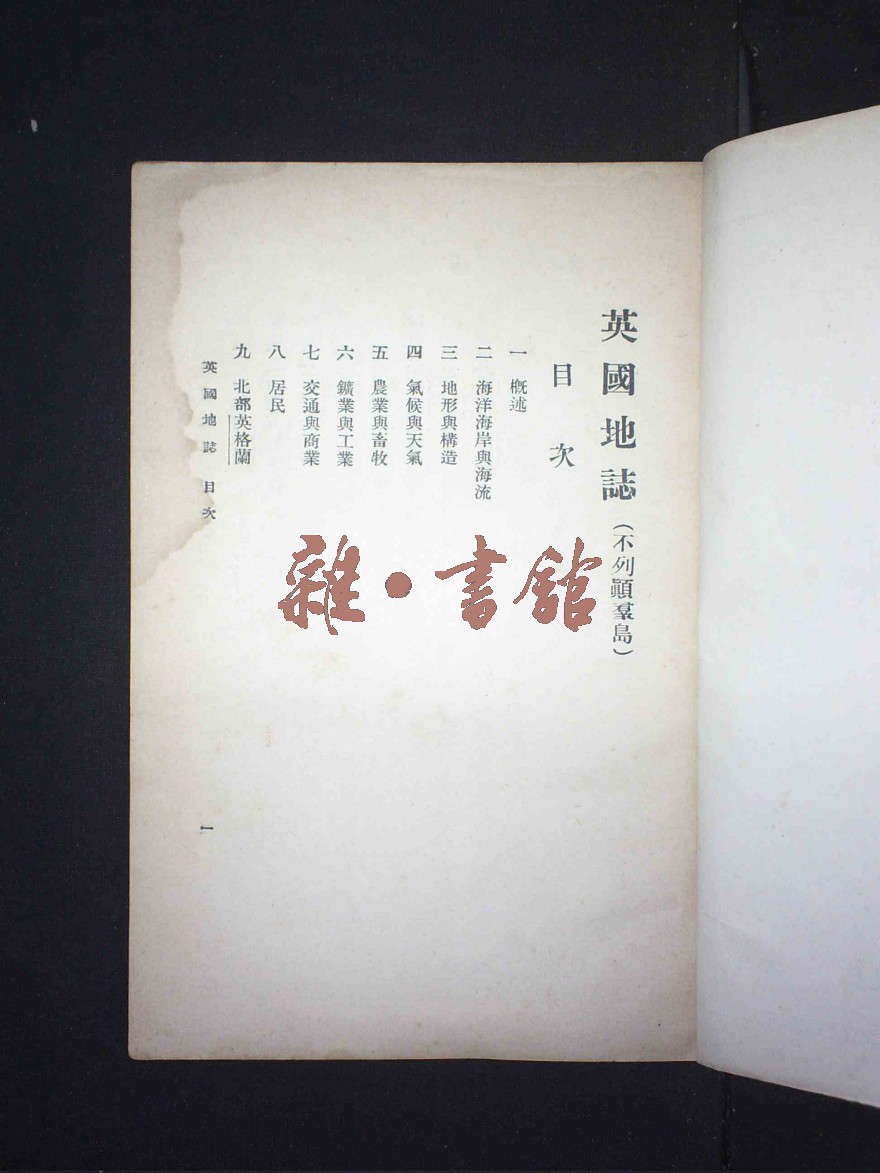 英國地誌(不列顚羣島)
目次
一 概述
二 海洋海岸與海流
三 地形與構造
四 氣候與天氣
五 農業與畜牧
六 鑛業與工業
七 交通與商業
八 居民
九 北部英格蘭
英國地誌 目次
一
雜·書館